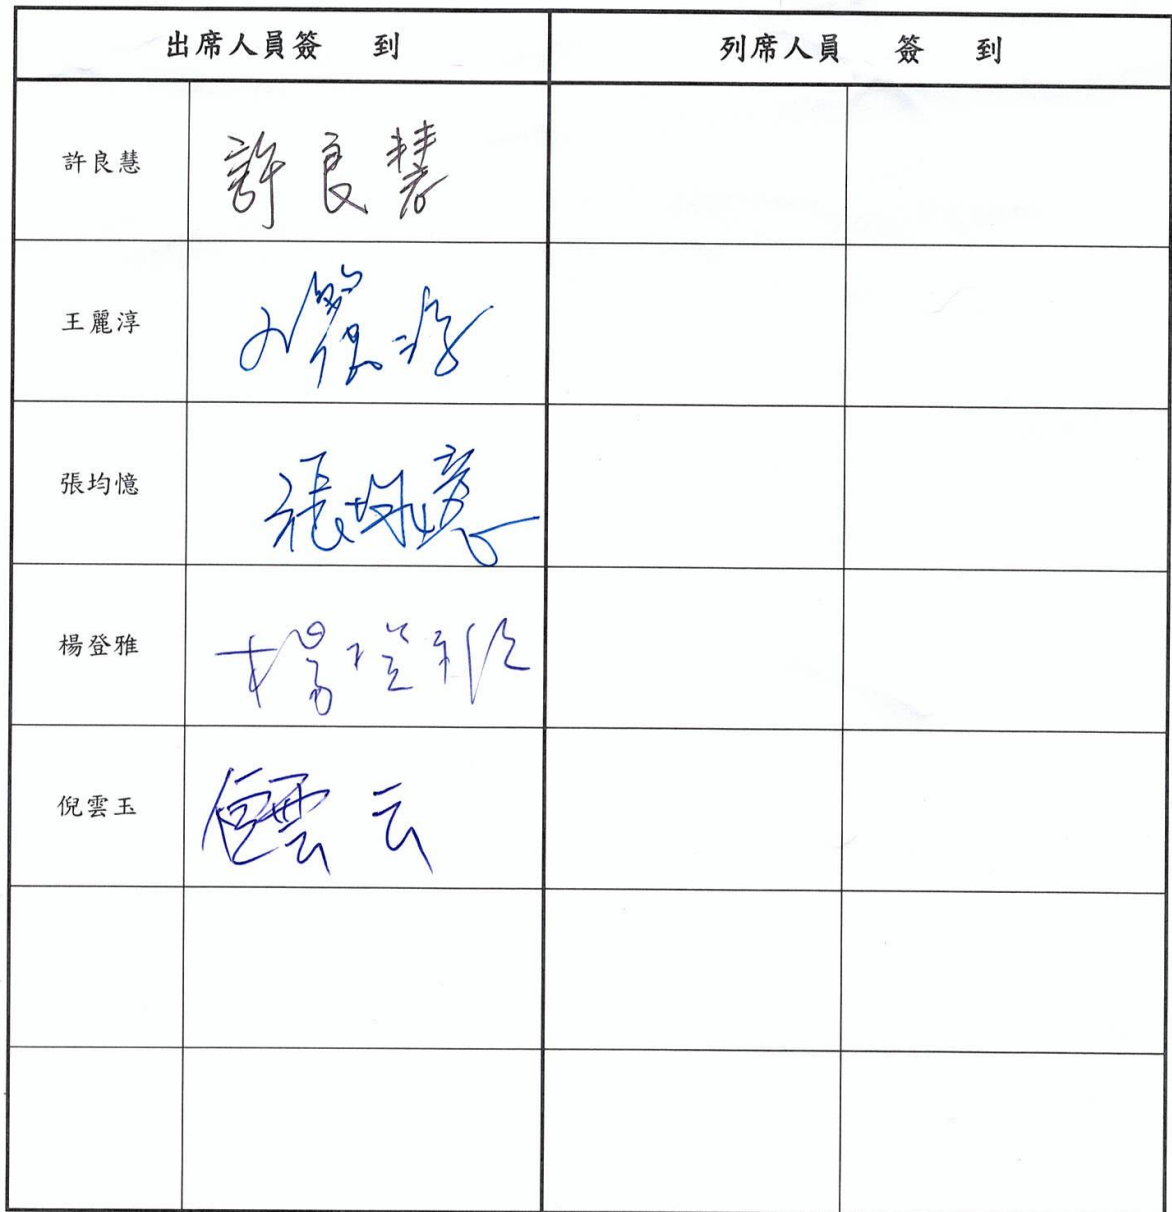 出席人員簽 到 列席人員 簽 到
許良慧 許良慧
王麗淳
張均憶 張均憶
楊登雅 楊登雅
倪雲玉 倪雲玉